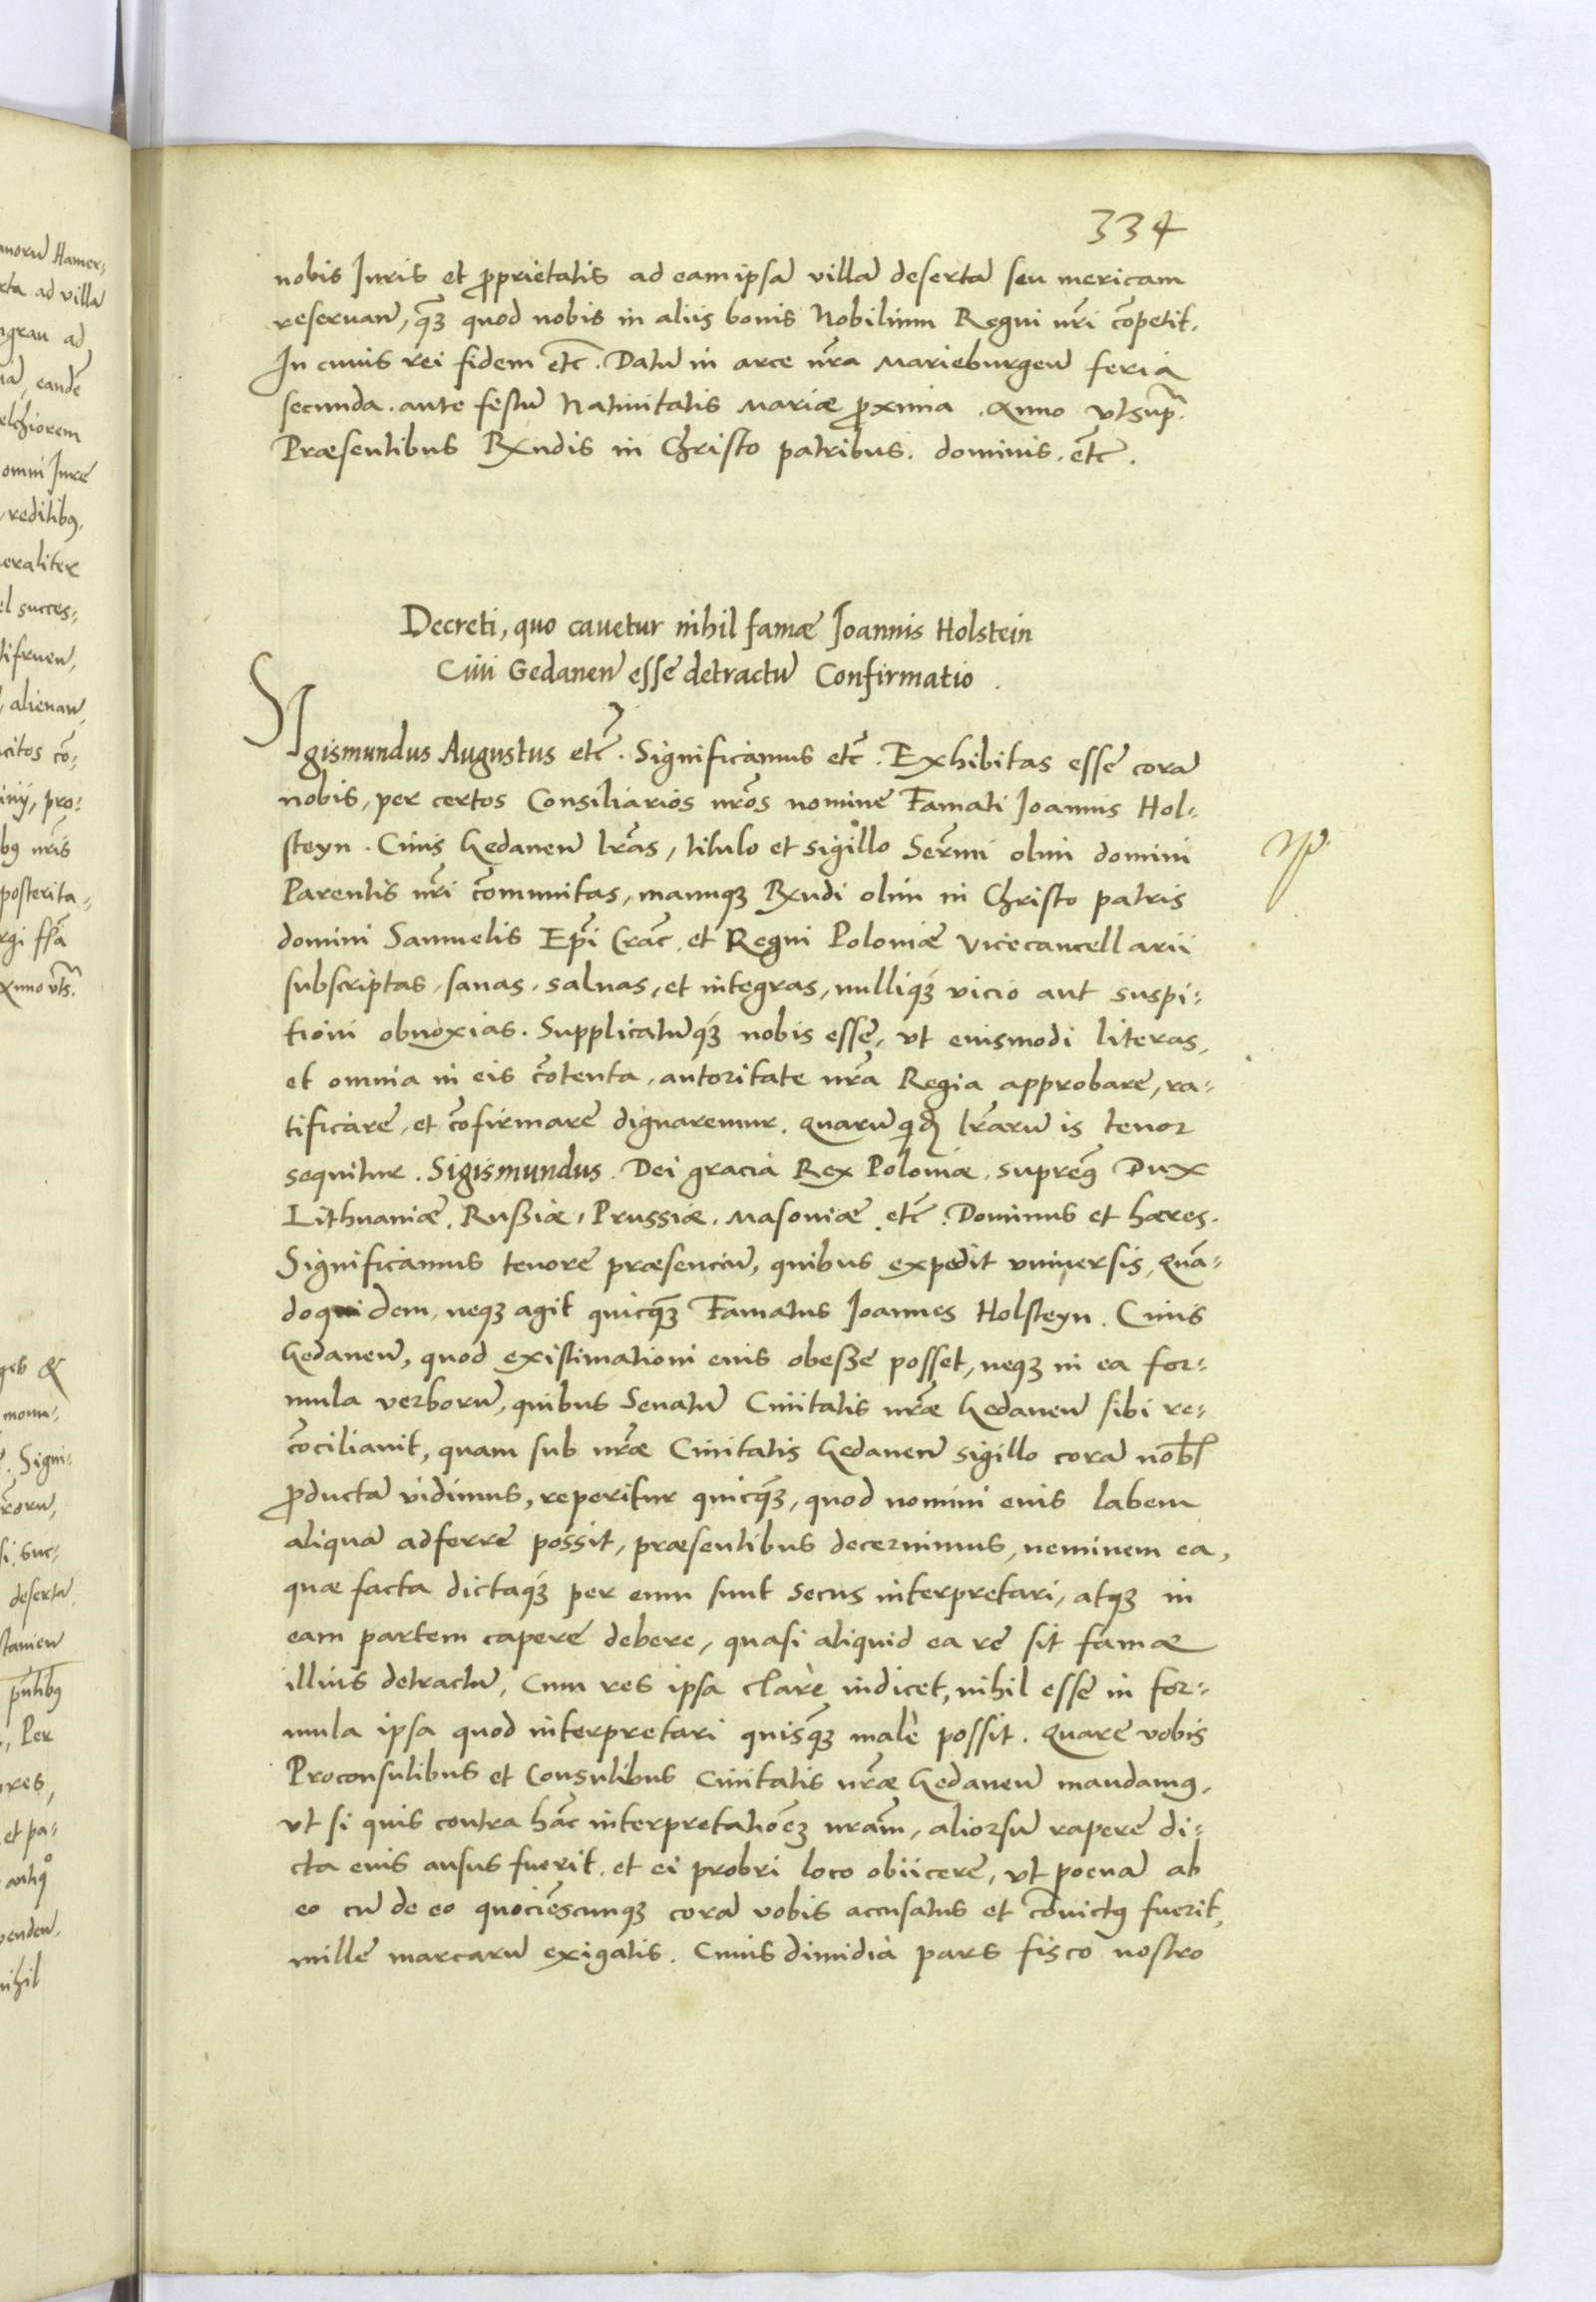 334
nobis Iuris et ꝓprietatis ad eam ipsã villã desertã seu mericam
reseruan̄, q̃ꝫ quod nobis in aliis bonis Nobilium Regni nr̃i cõpetit.
In cuius rei fidem etc̃. Datũ in arce nr̃a Marieburgen̄ feria
secunda ante festũ Natiuitatis Mariæ ꝓxima. Anno vtsup̃.
Præsentibus Rx̃ndis in Christo patribus. dominis. etc̃.
Decreti, quo cauetur nihil famæ Ioannis Holstein
Ciui Gedanen̄ esse detractũ Confirmatio.
Sigismundus Augustus etc̃. Significamus etc̃. Exhibitas esse corã
nobis, per certos Consiliarios nr̃os nomine Famati Ioannis Hol-
steyn. Ciuis Gedanen̄ lr̃as, titulo et sigillo Ser̃mi olim domini
Parentis nr̃i cõmunitas, manuqꝫ Rx̃ndi olim in Christo patris
domini Samuelis Ep̃i Crac̃. et Regni Poloniæ Vicecancellarii
subscriptas, sanas, saluas, et integras, nulliqꝫ vicio aut suspi-
tioni obnoxias. Supplicatũqꝫ nobis esse, vt eiusmodi literas,
et omnia in eis cõtenta, autoritate nr̃a Regia approbare, ra-
tificare, et cõfirmare dignaremur. Quarũ qid̃ lr̃arũ is tenor
sequitur. Sigismundus. Dei gracia Rex Poloniæ. supremꝰ Dux
Lithuaniæ. Rußiæ, Prussiæ. Masoniæ etc̃. Dominus et hæres.
Significamus tenore præsenciũ, quibus expedit vniuersis, Quã-
doquidem, neqꝫ agit quicq̃ꝫ Famatus Ioannes Holsteyn. Ciuis
Gedanen̄, quod existimationi eius obeße posset, neqꝫ in ea for-
mula verborũ, quibus Senatũ Ciuitatis nr̃æ Gedanen̄ sibi re-
cõciliauit, quam sub nr̃æ Ciuitatis Gedanen̄ sigillo corã nob̃
ꝓductã vidimus, reperitur quicq̃ꝫ, quod nomini eius labem
aliquã adferre possit, præsentibus decernimus, neminem ea,
quæ facta dictaqꝫ per eum sunt secus interpretari, atqꝫ in
eam partem capere debere, quasi aliquid ea re sit famæ
illius detractũ, Cum res ipsa clarè indicet, nihil esse in for-
mula ipsa quod interpretari quisq̃ꝫ malè possit. Quare vobis
Proconsulibus et Consulibus Ciuitatis nr̃æ Gedanen̄ mandamꝰ,
vt si quis contra hãc interpretatiõeꝫ nr̃am, aliorsũ rapere di-
cta eius ausus fuerit, et ei probri loco obiicere, vt poenã ab
eo cũ de eo quociẽscunqꝫ corã vobis accusatus et cõuictꝰ fuerit,
mille marcarũ exigatis. Cuius dimidia pars fisco nostro